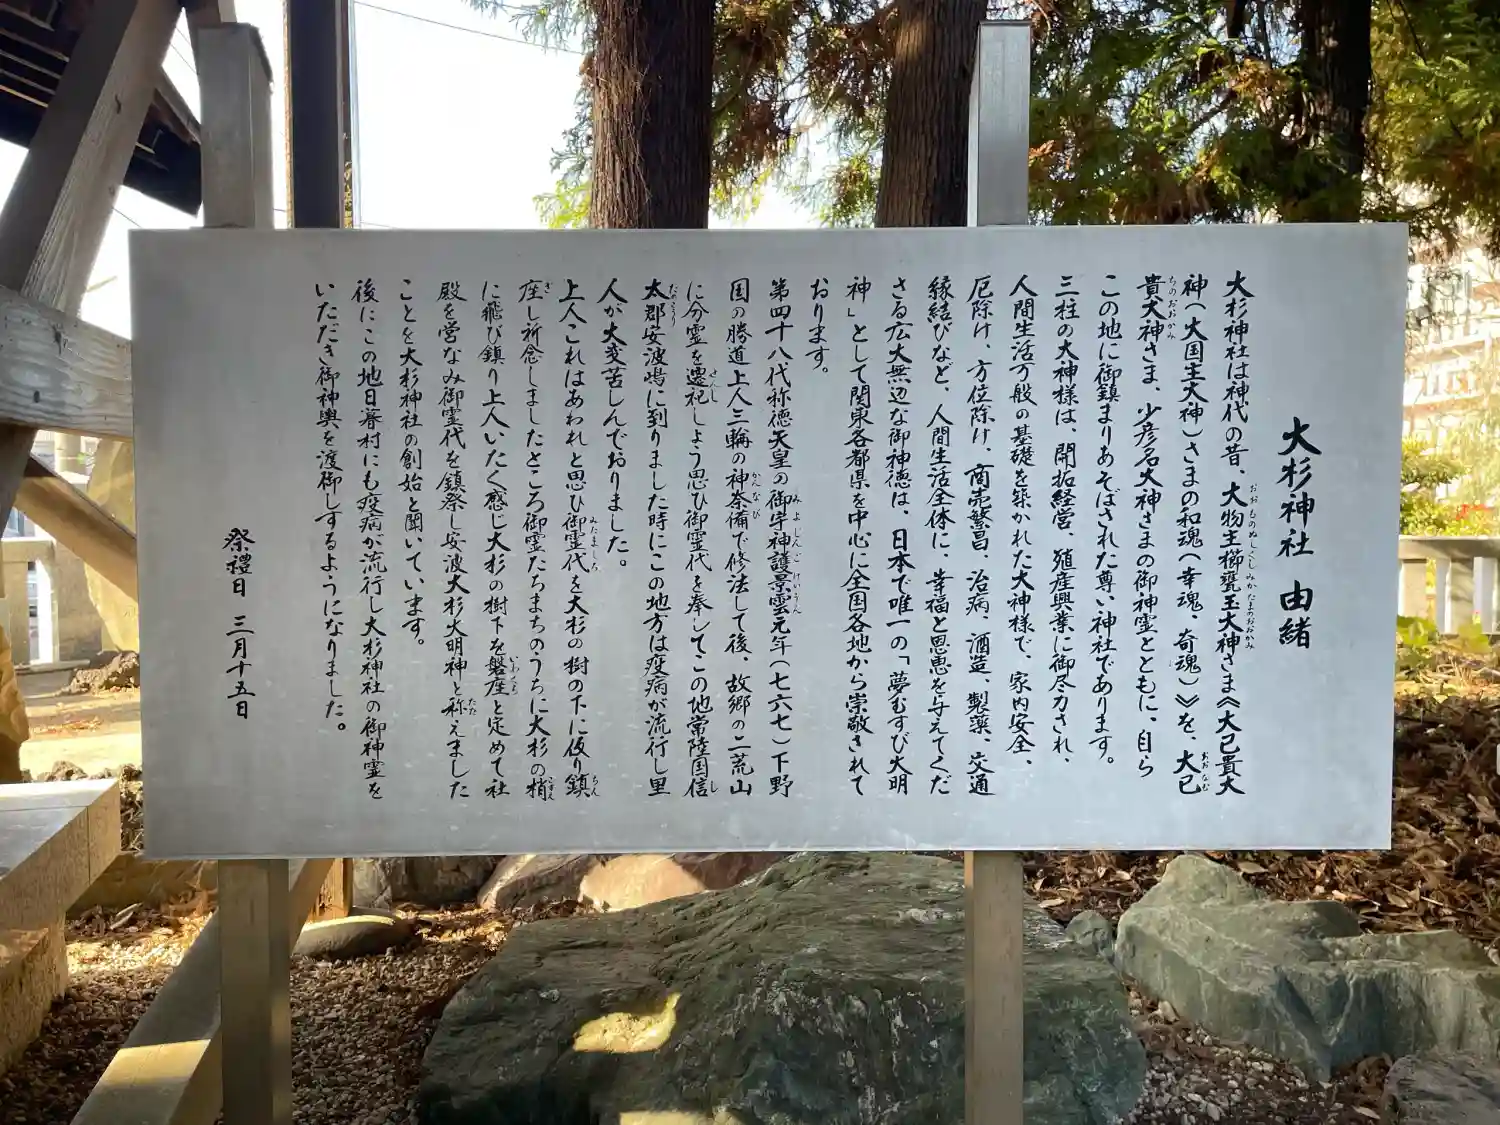 大杉神社 由緒
大杉神社は神代の昔、大物主櫛甕玉大神さま《大己貴大
神（大国主大神）さまの和魂（幸魂、奇魂）》を、大己
貴大神さま、少彦名大神さまの御神霊とともに、自ら
この地に御鎮まりあそばされた尊い神社であります。
三柱の大神様は、開拓経営、殖産興業に御尽力され、
人間生活万般の基礎を築かれた大神様で、家内安全、
厄除け、方位除け、商売繁昌、治病、酒造、製薬、交通
縁結びなど、人間生活全体に、幸福と恩恵を与えてくだ
さる広大無辺な御神徳は、日本で唯一の「夢むすび大明
神」として関東各都県を中心に全国各地から崇敬されて
おります。
第四十八代称徳天皇の御宇神護景雲元年（七六七）下野
国の勝道上人三輪の神奈備で修法して後、故郷の二荒山
に分霊を遷祀しよう思ひ御霊代を奉してこの地常陸国信
太郡安波嶋に到りました時にこの地方は疫病が流行し里
人が大変苦しんでおりました。
上人これはあわれと思ひ御霊代を大杉の樹の下に仮り鎮
座し祈念しましたところ御霊たちまちのうちに大杉の梢
に飛び鎮り上人いたく感じ大杉の樹下を磐座と定めて社
殿を営なみ御霊代を鎮祭し安波大杉大明神と称えました
ことを大杉神社の創始と聞いています。
後にこの地日審村にも疫病が流行し大杉神社の御神霊を
いただき御神輿を渡御しするようになりました。
祭禮日 三月十五日